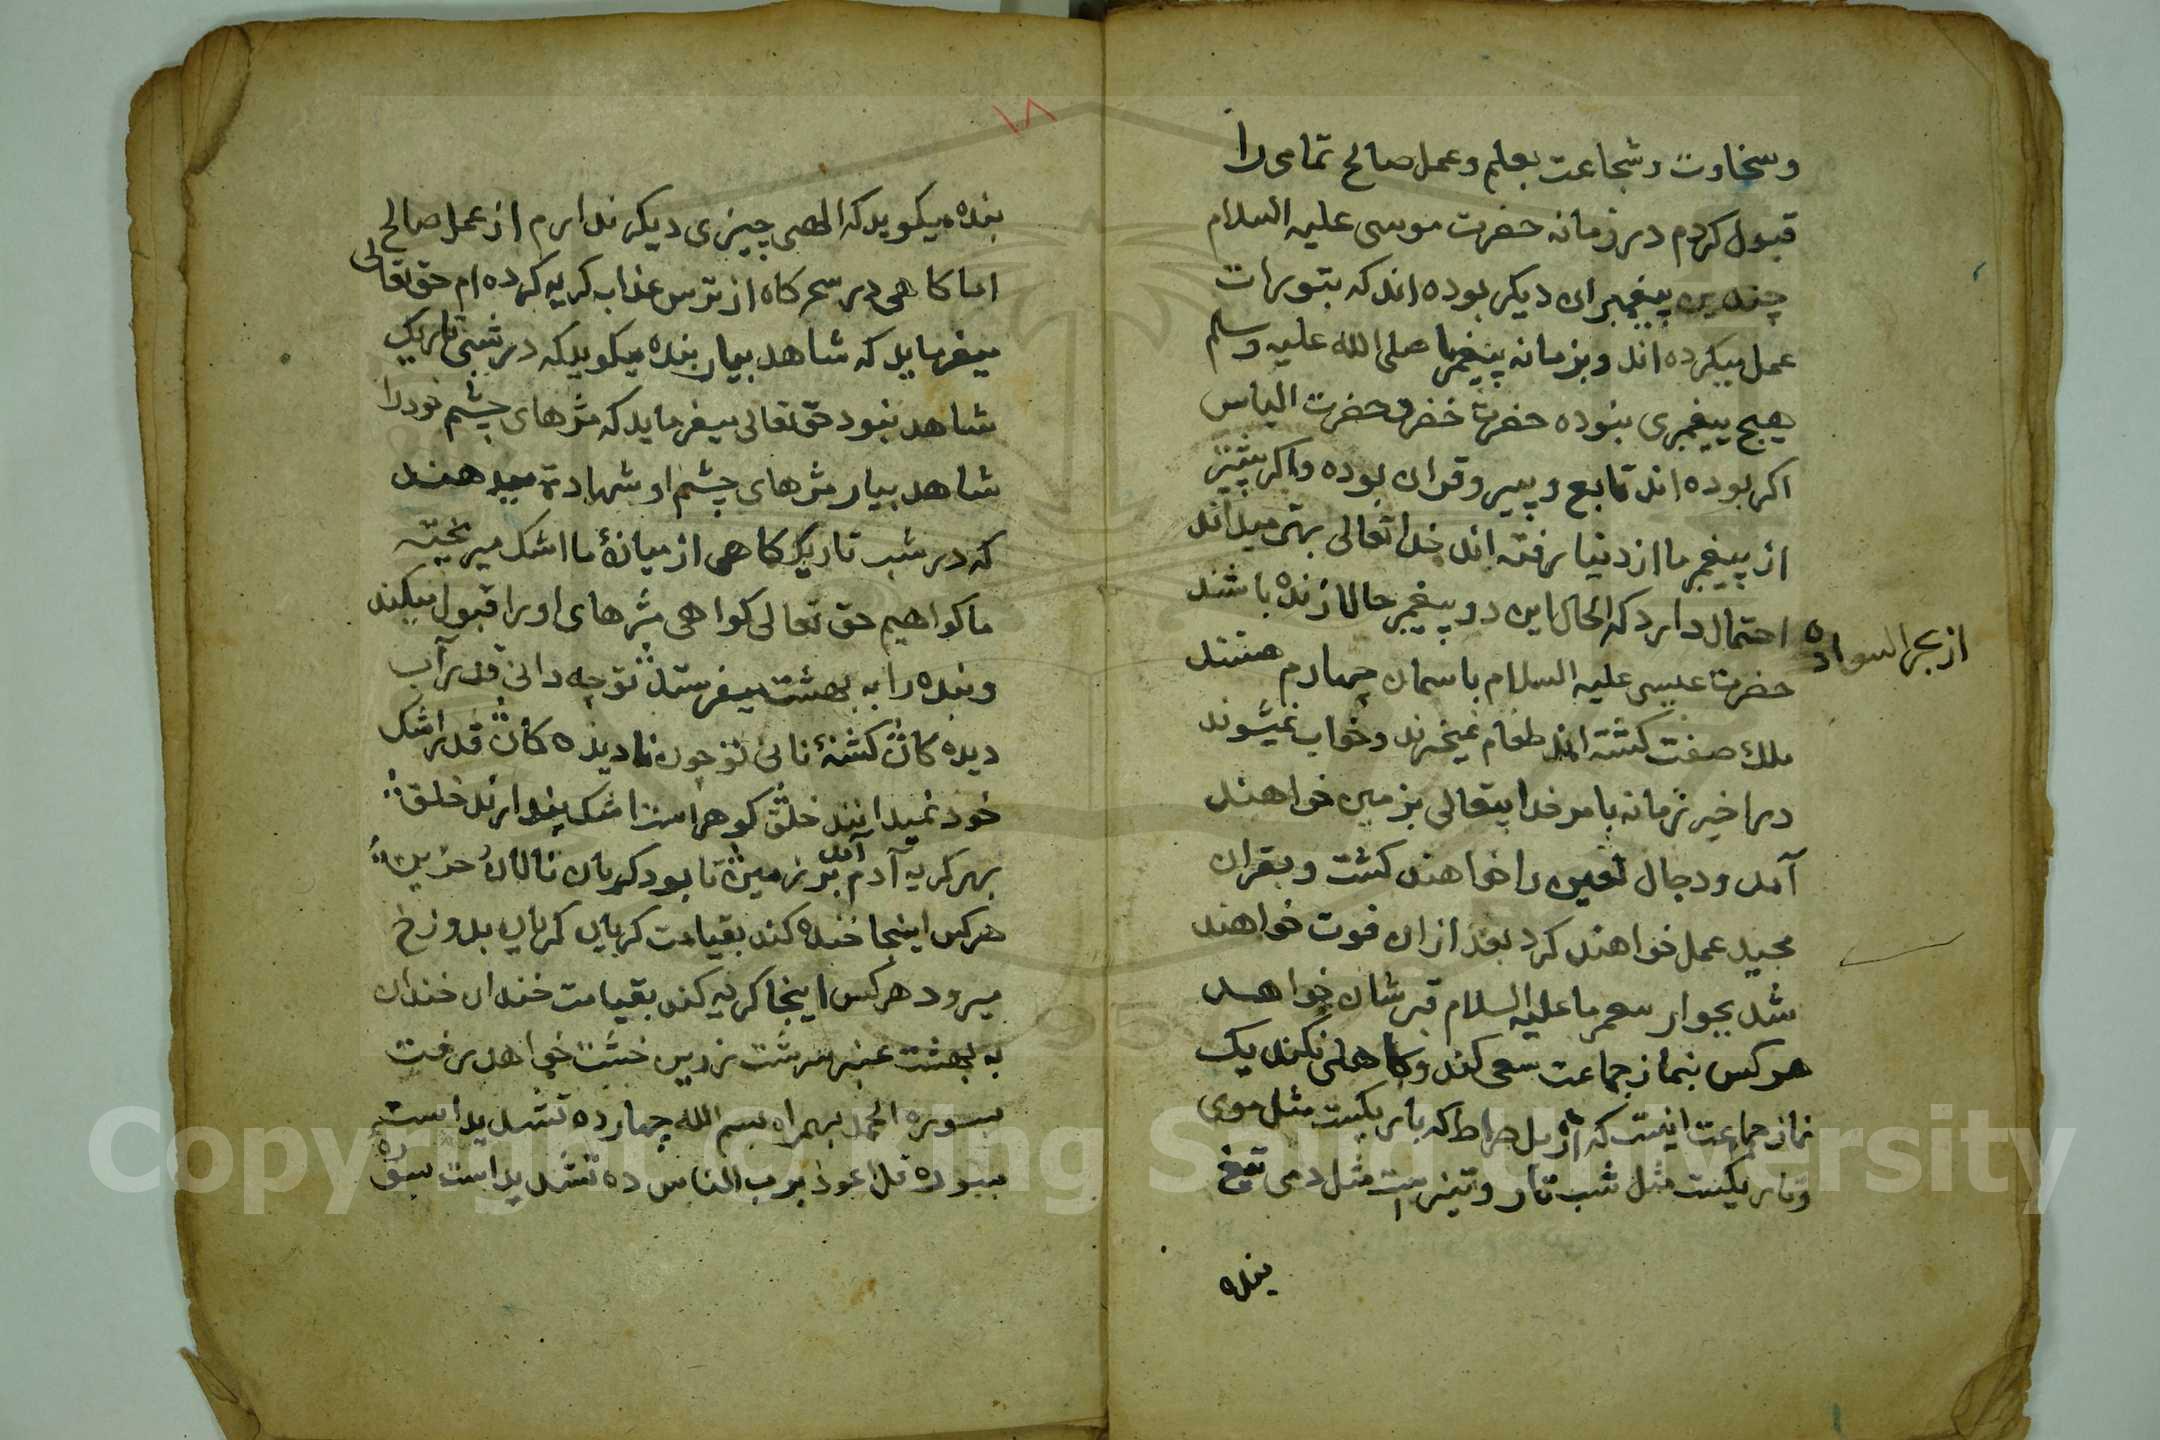 وسخاوت وشجاعت بعلم وعمل صالح تمامی را
قبول کردم در زمانه حضرت موسی علیه السلام
چندین پیغمبران دیکر بوده اند که بتورات
عمل میکرده اند وبزمانه پیغمبر ما صلی الله علیه وسلم
هیچ پیغمبری نبوده حضرت خضر وحضرت الیاس
اکر بوده اند تابع وپیرو قران بوده واکر پیشتر
از پیغمبر ما از دنیا رفته اند خدا تعالی بهتر میداند
احتمال دارد که الحال این دو پیغمبر حالا زنده باشند
از بحر السواده
حضرت عیسی علیه السلام باسمان چهارم هستند
ملک صفت کشته اند طعام نمیخورند وخواب نمیشوند
در اخیر زمانه بامر خدایتعالی بزمین خواهند
آمد ودجال لعین را خواهند کشت وبقران
مجید عمل خواهند کرد بعد ازان فوت خواهند
شد بجوار پیغمبر ما علیه السلام قبر شان خواهد
هر کس بنماز جماعت سعی کند وکاهلی نکند یک
نماز جماعت اینست که از پل صراط که باریکست مثل موی
وتاریکست مثل شب تار وتیز است مثل دمی تیغ
بنده
١٨
بنده میکوید که الهی چیزی دیکر ندارم از عمل صالح
اما کاهی در سحرکاه از ترس عذاب کریه کرده ام حق تعالی
میفرماید که شاهد بیار بنده میکوید که در شبی تاریک
شاهد نبود حق تعالی میفرماید که مژهای چشم خود را
شاهد بیار مژهای چشم او شهادة میدهند
که در شب تاریک کاهی از میانهٔ ما اشک میریخته
ما کواهیم حق تعالی کواهی مژهای او را قبول میکند
وبنده را به بهشت میفرستد تو چه دانی قدر آب
دیده کان کشنهٔ نانی تو چون نادیده کان قدر اشک
خود نمیدانند خلق کوهر است اشک پندارند خلق
بهر کریه آدم آمد بر زمین تا بود کریان نالان حزین
هر کس اینجا خنده کند بقیامت کریان کریان بدوزخ
میرود هر کس اینجا کریه کند بقیامت خندان خندان
به بهشت عنبر سرشت زرین خشت خواهد رفت
سوره الحمد بهمراه بسم الله چهارده تشدید است
سوره قل اعوذ برب الناس ده تشدید است سوره